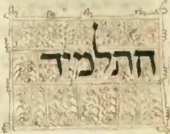 התלמיד